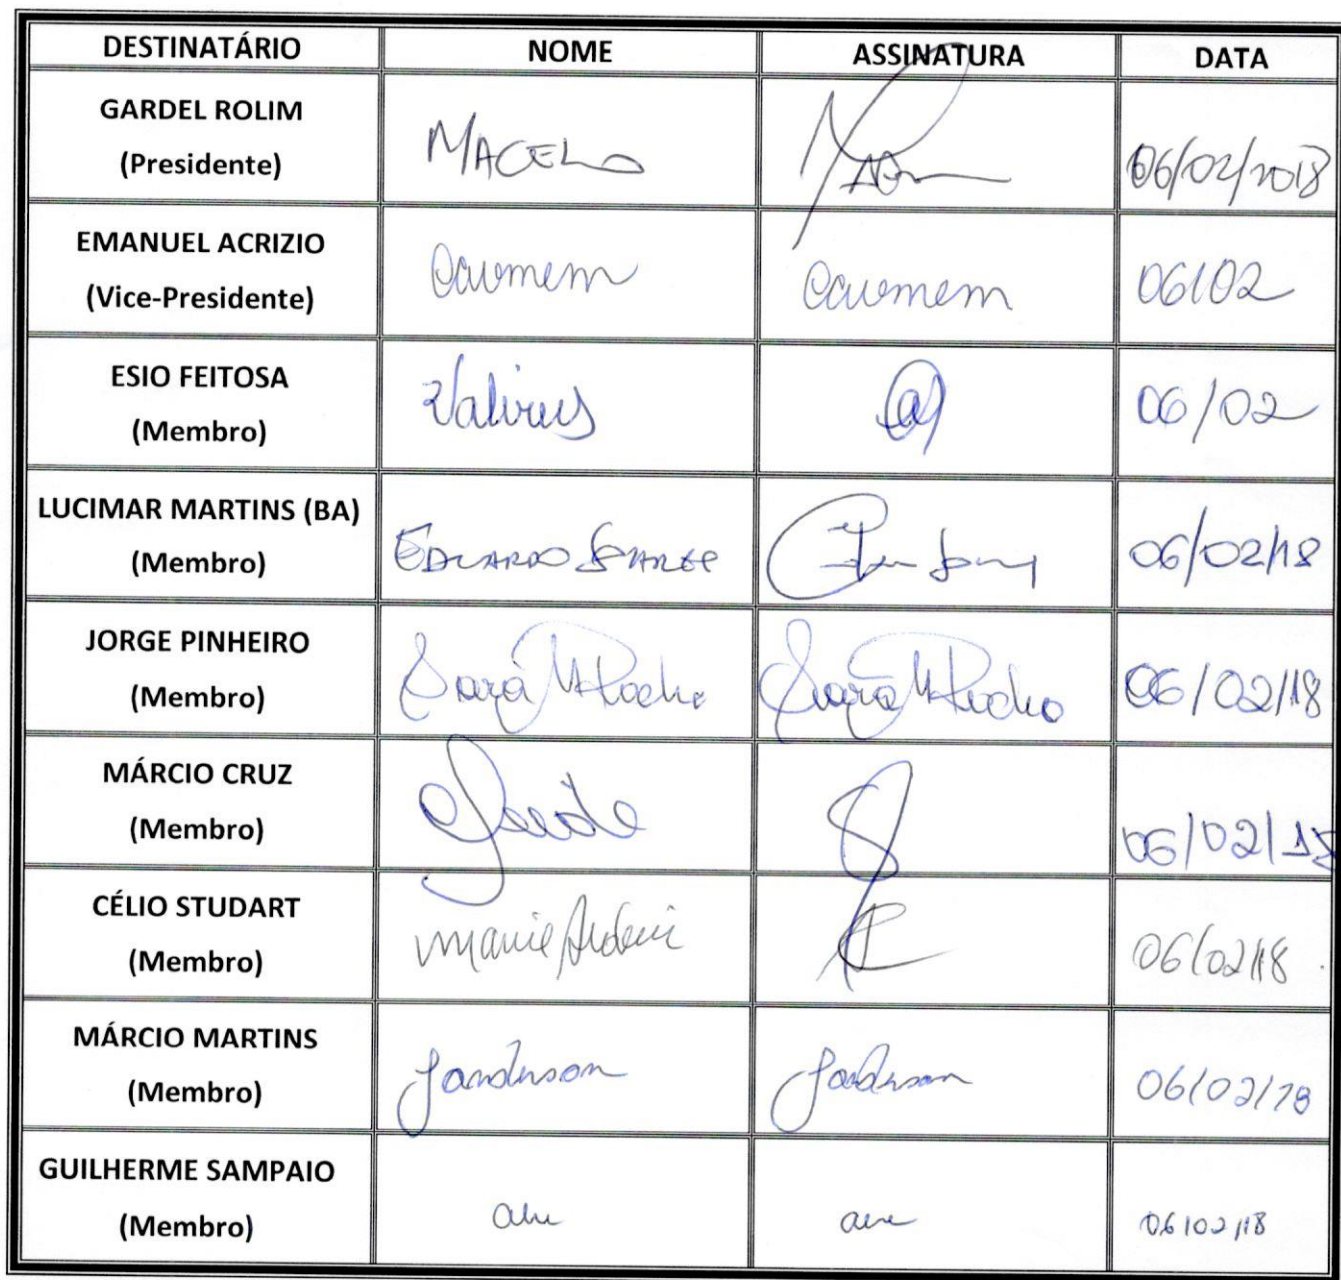 DESTINATÁRIO NOME ASSINATURA DATA
GARDEL ROLIM
(Presidente)
MACELO
06/02/2018
EMANUEL ACRIZIO
(Vice-Presidente)
Carmem Carmem 06/02
ESIO FEITOSA
(Membro)
06/02
LUCIMAR MARTINS (BA)
(Membro)
EDUARDO SOARES
06/02/18
JORGE PINHEIRO
(Membro)
Sara M Rocha Sara M Rocha 06/02/18
MÁRCIO CRUZ
(Membro)
06/02/18
CÉLIO STUDART
(Membro)
06/02/18
MÁRCIO MARTINS
(Membro)
Janderson Janderson 06/02/18
GUILHERME SAMPAIO
(Membro)
06/02/18